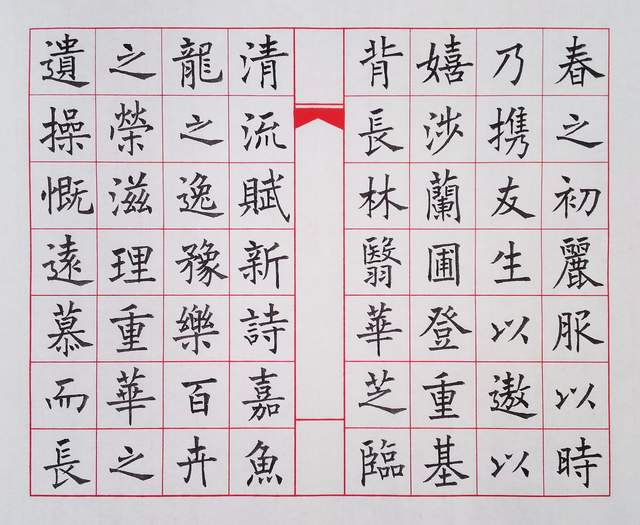 春之初麗服以時
乃携友生以遨以
嬉涉蘭圃登重基
背長林翳華芝臨
清流賦新詩嘉魚
龍之逸豫樂百卉
之榮滋理重華之
遺操慨遠慕而長